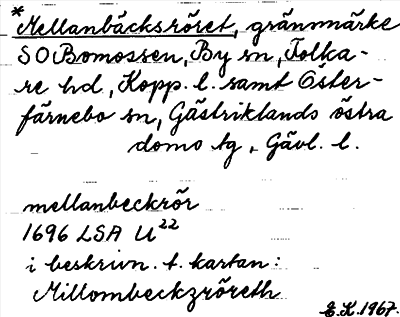 *Mellanbäcksröret, gränsmärke
SO Bomossen, By sn, Folka-
re hd, Kopp. l. samt Öster-
färnebo sn, Gästriklands östra
domo tg, Gävl. l.
mellanbeckrör
1696 LSA U²²
i beskrivn. t. kartan:
Millombeckzröreth
E.K. 1967.